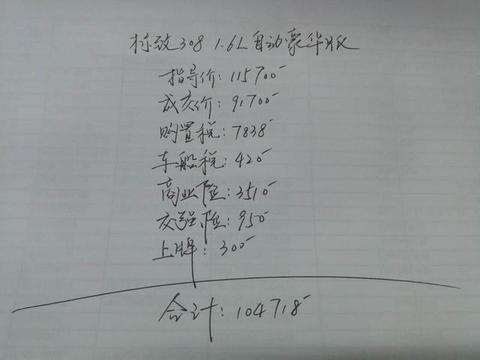 标致308 1.6L自动豪华版
指导价:115700
成交价:91700
购置税:7838
车船税:420
商业险:3510
交强险:950
上牌:300
合计:104718